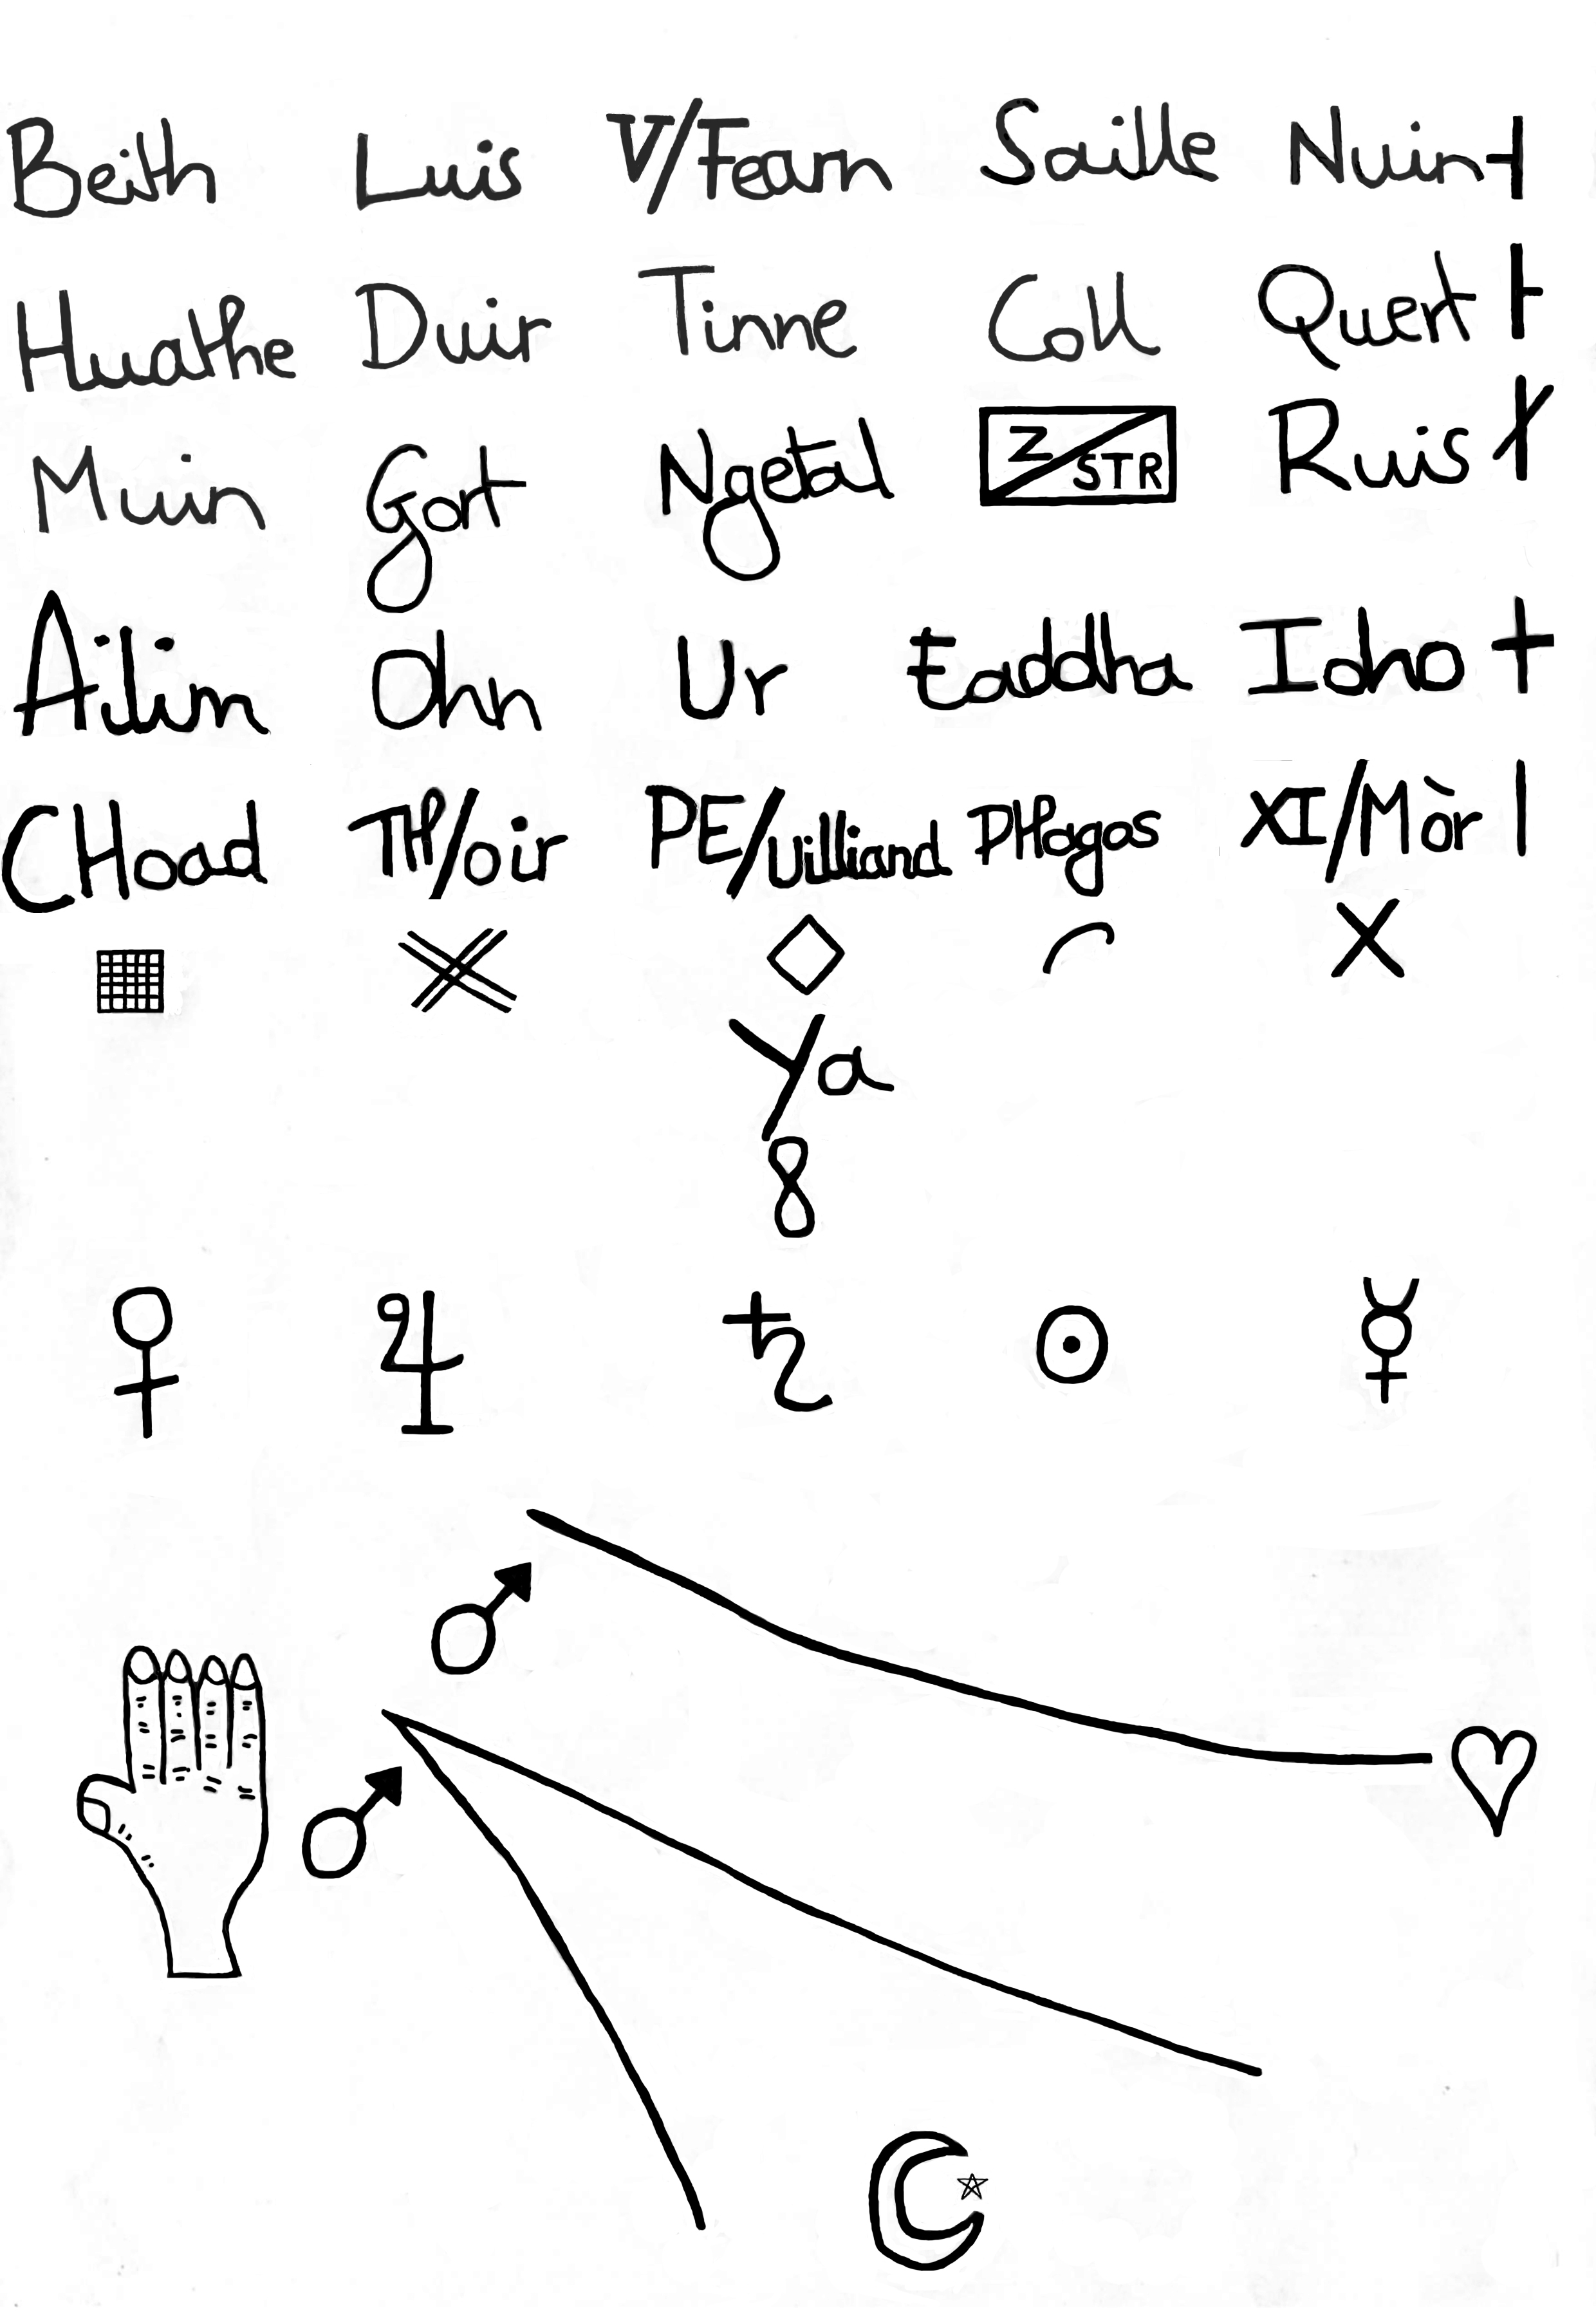 Beith Luis V/Fearn Saille Nuin
Huathe Duir Tinne Coll Quert
Muin Gort Ngetal Z/STR Ruis
Ailim Ohn Ur Eaddha Ioho
CHoad TH/oir PE/Uilliand PHagos XI/Mòr
Ya
8
♀ ♃ ♄ ☉ ☿
♂
♂